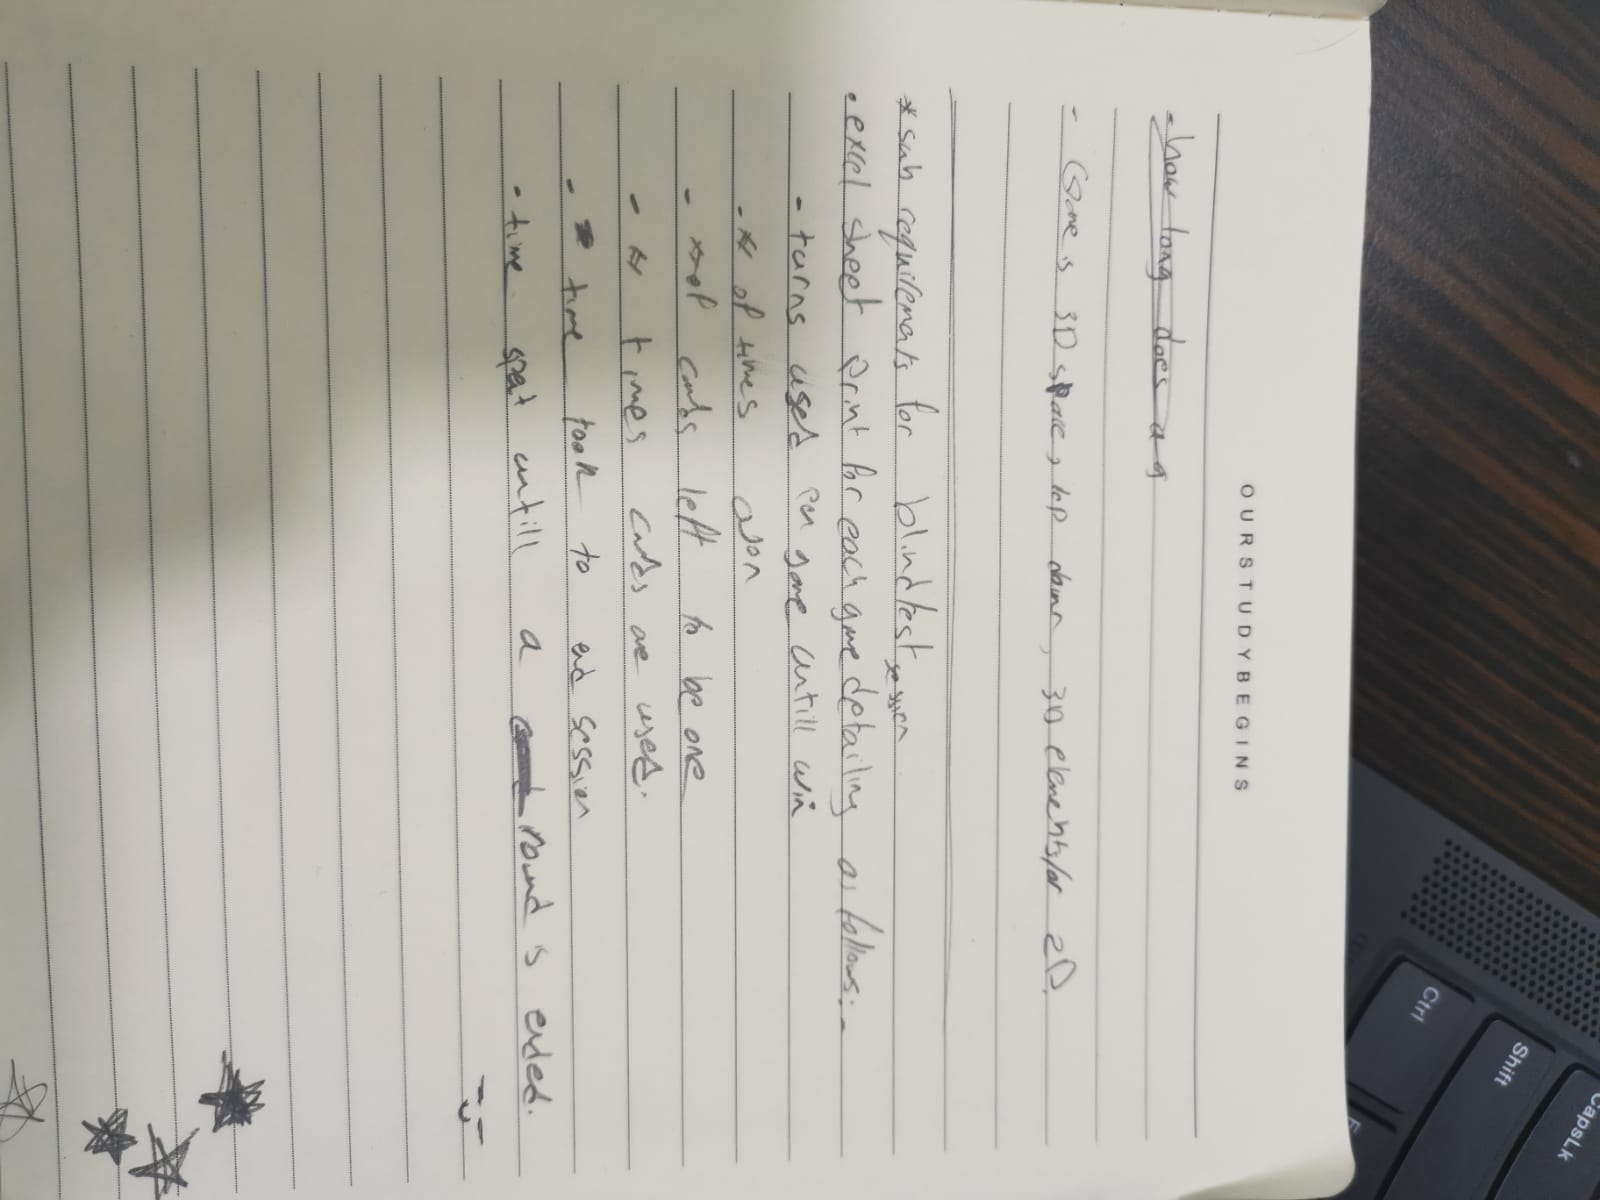 CapsLk
Shift
Ctrl
OURSTUDYBEGINS
- how long does a g
- Game is 3D space, top down, 3D elements/or 2D.
* sub requirements for blindtest session
• excel sheet print for each game detailing as follows:-
- turns used per game untill win
- # of times won
- # of cards left to be one
- # times cards are used.
- time took to end session
- time spent untill a round is ended.